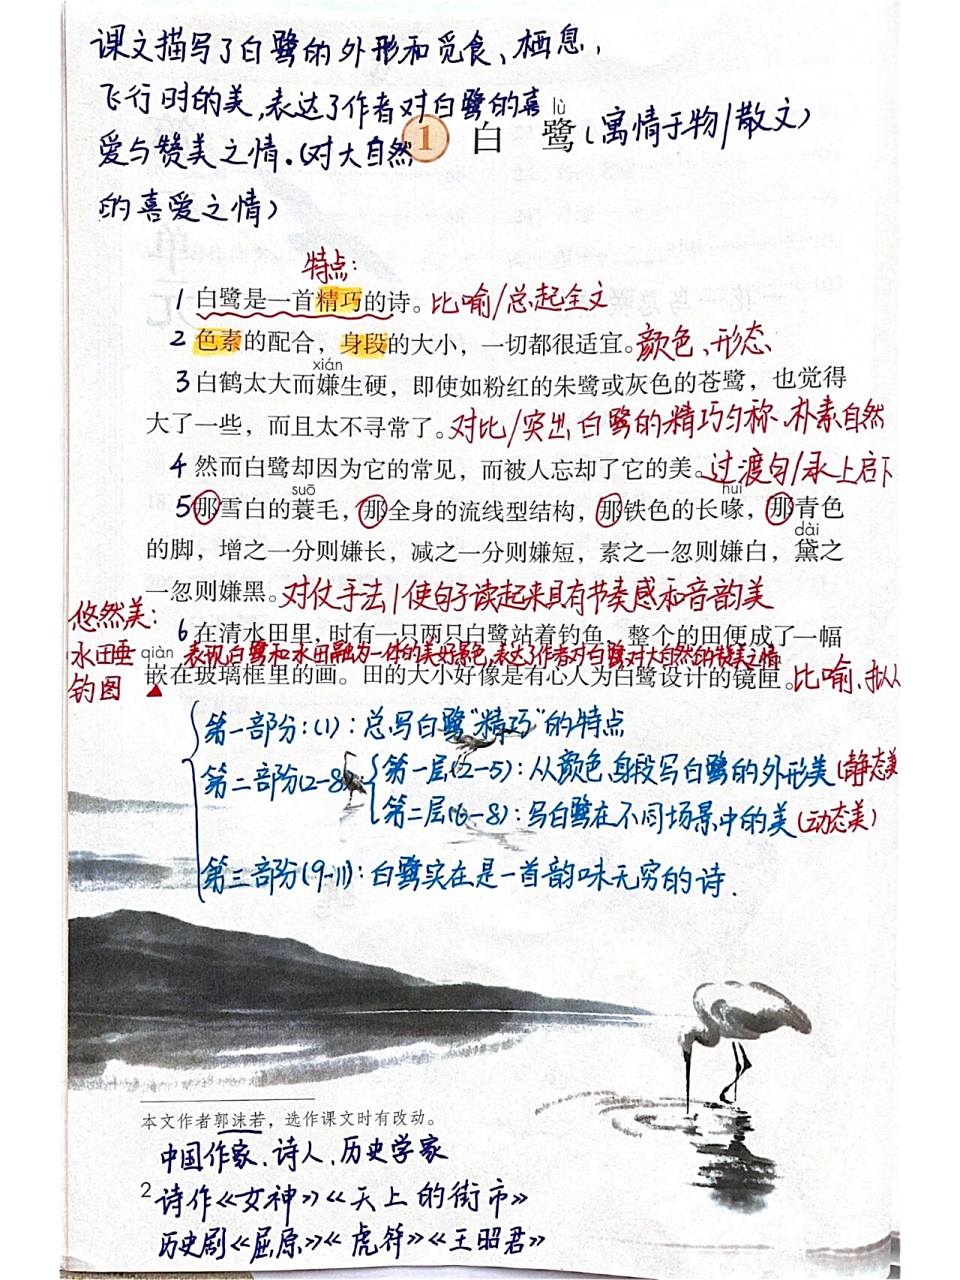 课文描写了白鹭的外形和觅食、栖息、
飞行时的美,表达了作者对白鹭的喜
爱与赞美之情.(对大自然
的喜爱之情)
lù
1 白 鹭(寓情于物/散文)
特点:
1 白鹭是一首精巧的诗。比喻/总起全文
2 色素的配合，身段的大小，一切都很适宜。颜色、形态、
xián
3 白鹤太大而嫌生硬，即使如粉红的朱鹭或灰色的苍鹭，也觉得
大了一些，而且太不寻常了。对比/突出白鹭的精巧匀称、朴素自然
4 然而白鹭却因为它的常见，而被人忘却了它的美。过渡句/承上启下
suō huì
5 那雪白的蓑毛，那全身的流线型结构，那铁色的长喙，那青色
dài
的脚，增之一分则嫌长，减之一分则嫌短，素之一忽则嫌白，黛之
一忽则嫌黑。对仗手法/使句子读起来具有节奏感和音韵美
悠然美:
6 在清水田里，时有一只两只白鹭站着钓鱼，整个的田便成了一幅
水田垂
钓图
qiàn 表现白鹭和水田融为一体的美好景色,表达了作者对白鹭,对大自然的赞美之情
嵌在玻璃框里的画。田的大小好像是有心人为白鹭设计的镜匣。比喻、拟人
第一部分:(1):总写白鹭"精巧"的特点
第二部分(2-8) 第一层(2-5):从颜色,身段写白鹭的外形美(静态美
第二层(6-8):写白鹭在不同场景中的美(动态美)
第三部分(9-11):白鹭实在是一首韵味无穷的诗.
本文作者郭沫若，选作课文时有改动。
中国作家、诗人、历史学家
2
诗作《女神》《天上的街市》
历史剧《屈原》《虎符》《王昭君》